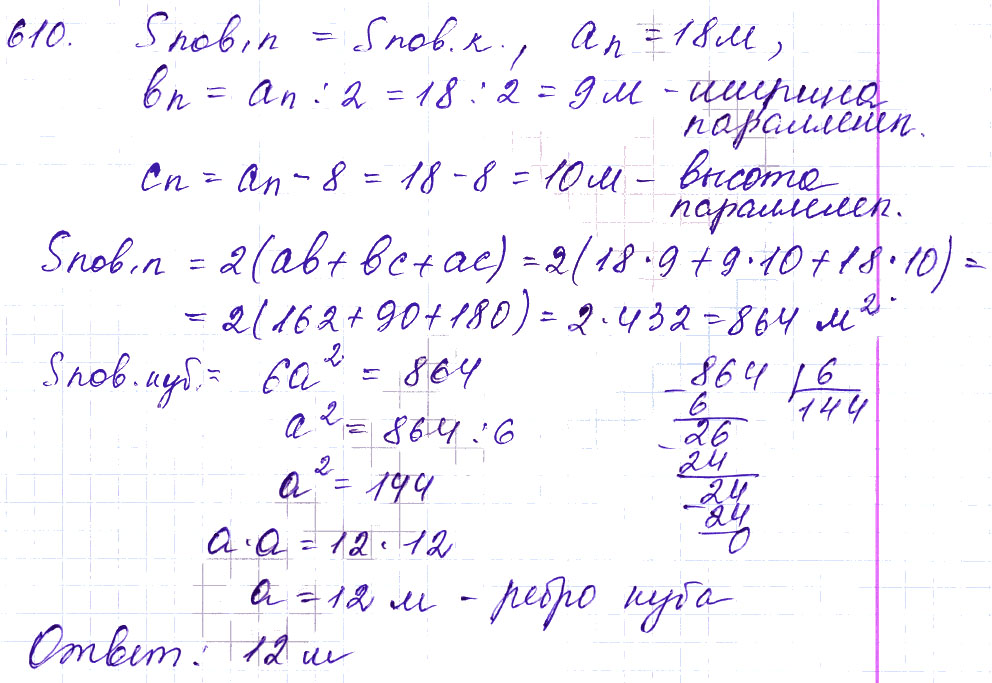 610. Sпов.п = Sпов.к., aп = 18м,
вп = aп : 2 = 18 : 2 = 9м - ширина
параллелеп.
cп = aп - 8 = 18 - 8 = 10м - высота
параллелеп.
Sпов.п = 2(ab + bc + ac) = 2(18·9 + 9·10 + 18·10) =
= 2(162 + 90 + 180) = 2·432 = 864 м².
Sпов.куб. = 6a² = 864
a² = 864 : 6
a² = 144
a·a = 12·12
a = 12 м - ребро куба
Ответ: 12 м
- 864 | 6
6 144
- 26
24
- 24
24
0